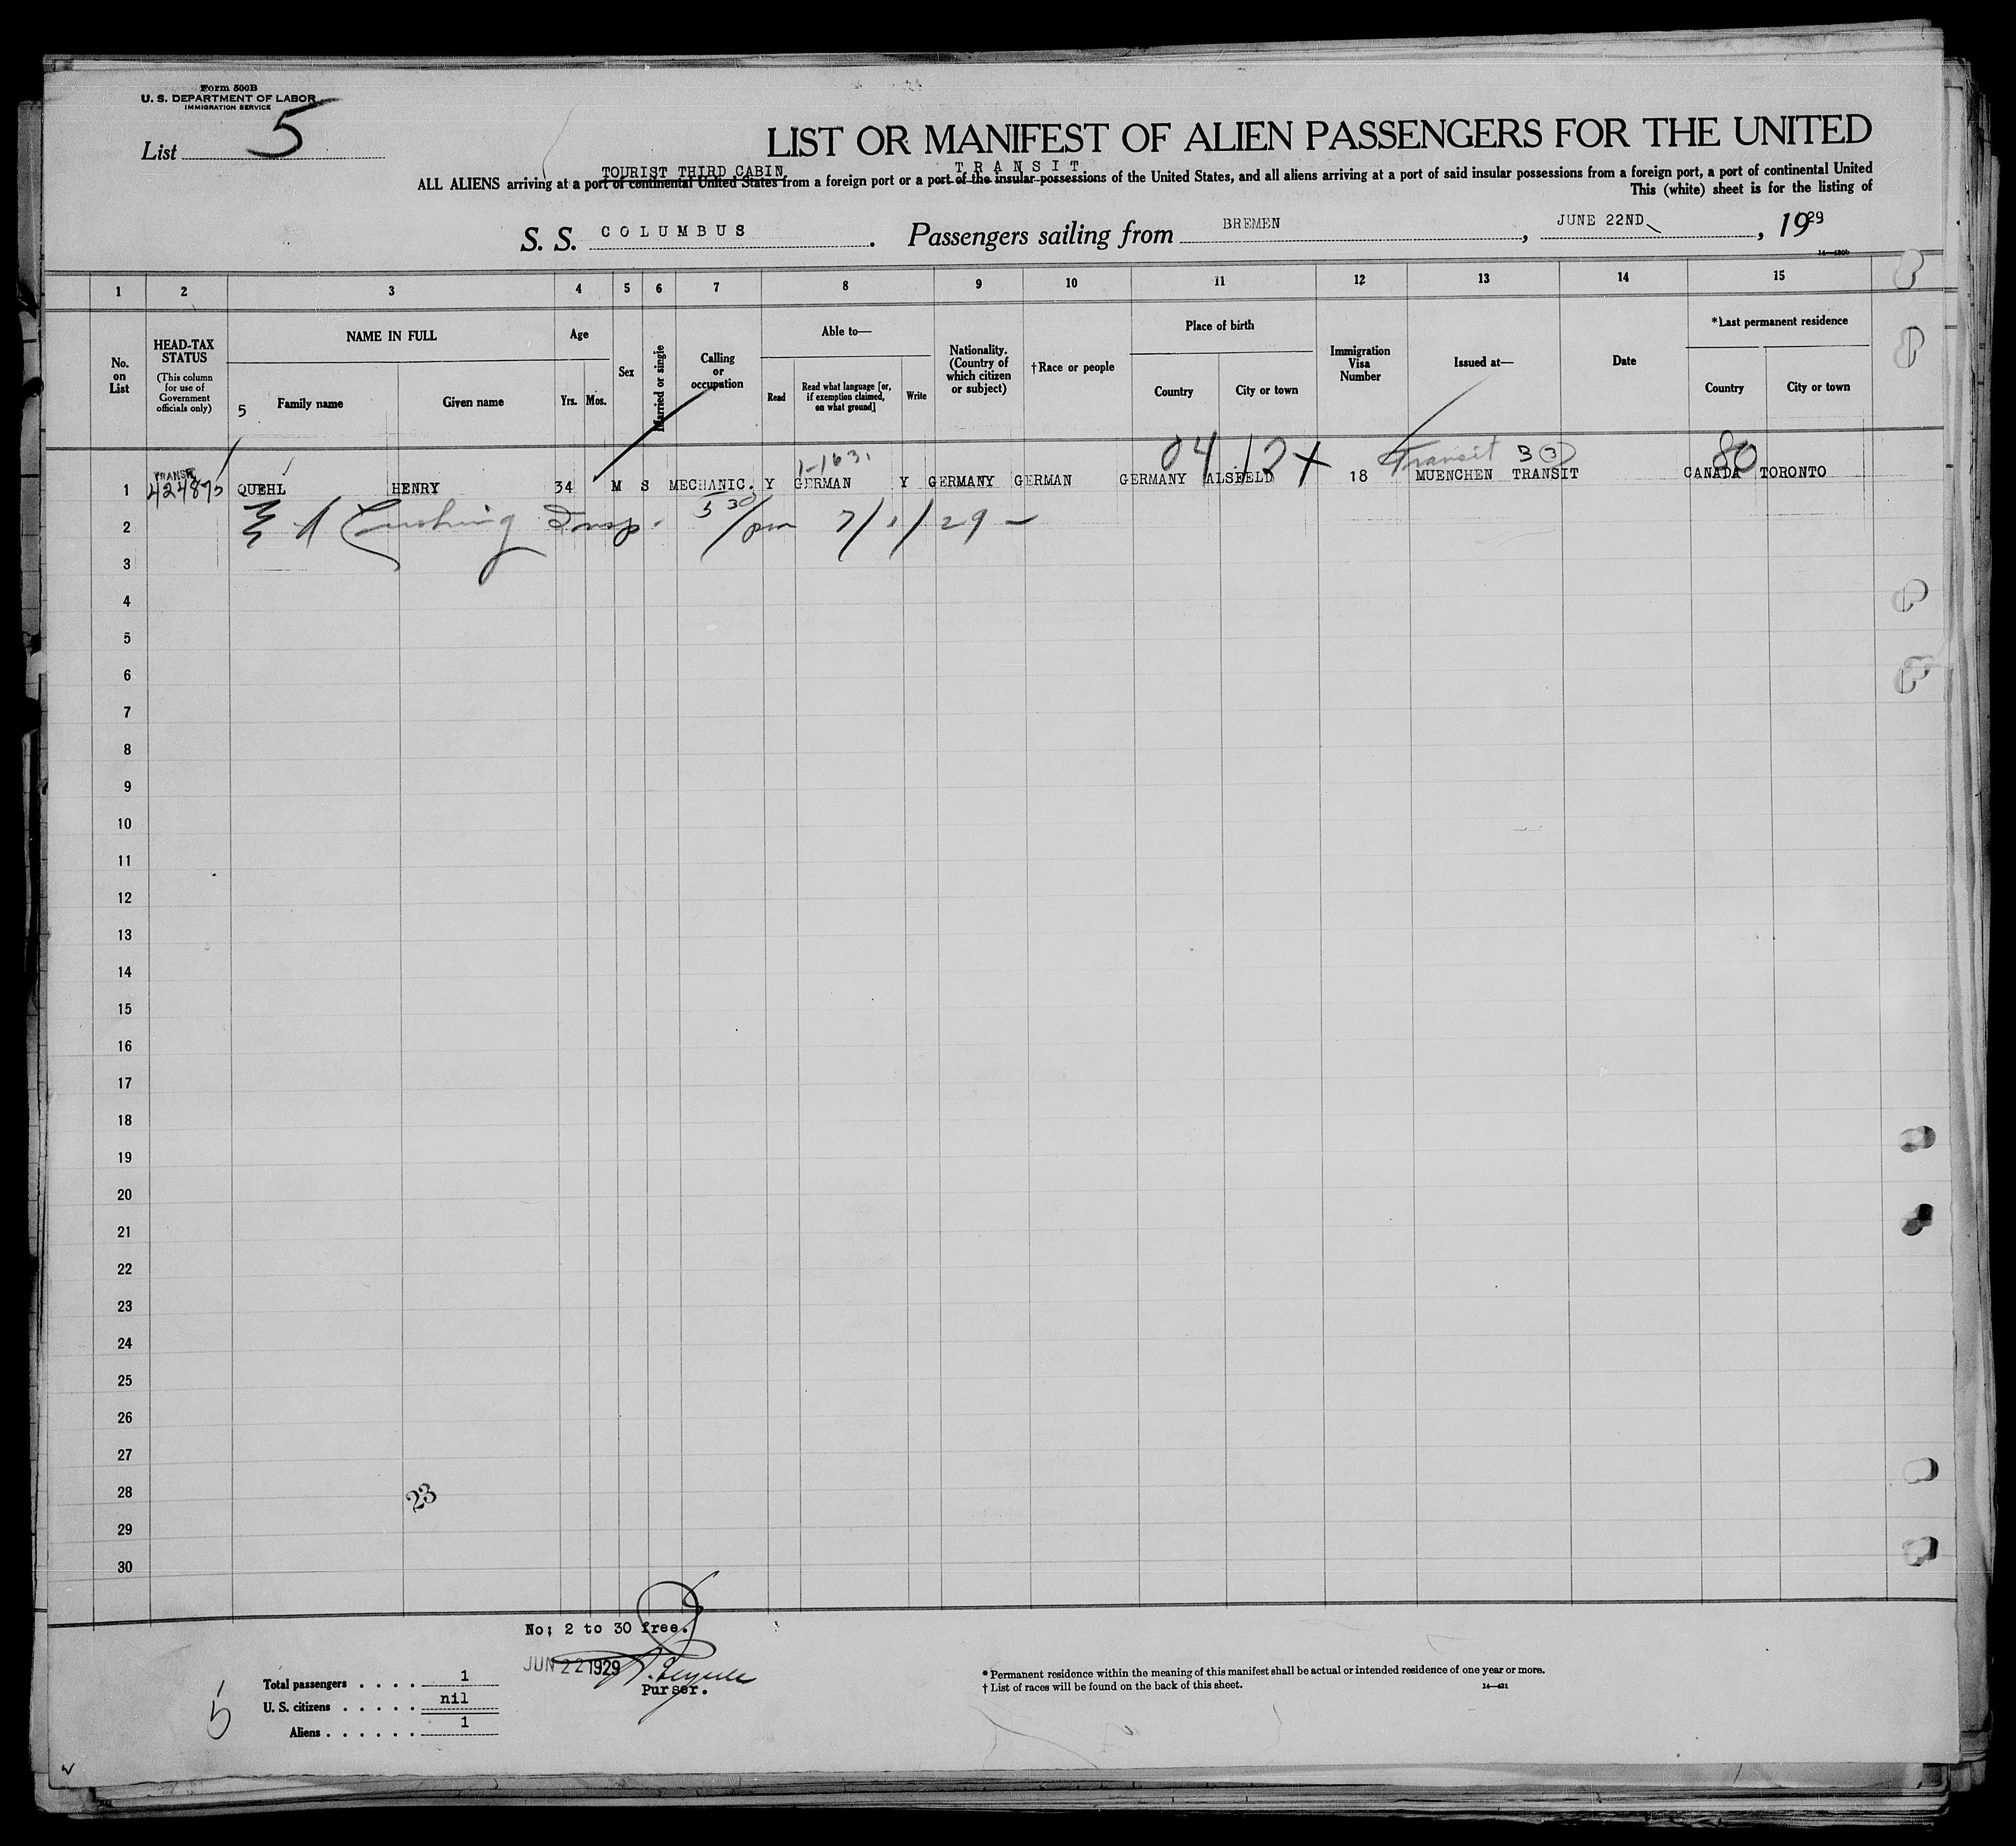 Form 500B
U. S. DEPARTMENT OF LABOR
IMMIGRATION SERVICE
List 5
LIST OR MANIFEST OF ALIEN PASSENGERS FOR THE UNITED
TOURIST THIRD CABIN TRANSIT
ALL ALIENS arriving at a port of continental United States from a foreign port or a port of the insular possessions of the United States, and all aliens arriving at a port of said insular possessions from a foreign port, a port of continental United
This (white) sheet is for the listing of
S. S. COLUMBUS. Passengers sailing from BREMEN, JUNE 22ND, 1929
14—430b
1 2 3 4 5 6 7 8 9 10 11 12 13 14 15
No. on List
HEAD-TAX STATUS (This column for use of Government officials only)
NAME IN FULL
5 Family name Given name
Age Yrs. Mos.
Sex
Married or single
Calling or occupation
Able to— Read Read what language [or, if exemption claimed, on what ground] Write
Nationality. (Country of which citizen or subject)
†Race or people
Place of birth Country City or town
Immigration Visa Number
Issued at—
Date
*Last permanent residence Country City or town
1-1631 04 12 X Transit 3 3 80
TRANSIT
1 424875 QUEHL HENRY 34 M S MECHANIC. Y GERMAN Y GERMANY GERMAN GERMANY ALSFELD 18 MUENCHEN TRANSIT CANADA TORONTO
2 E A Cushing Insp. 5 30/pm 7/1/29 —
3
4
5
6
7
8
9
10
11
12
13
14
15
16
17
18
19
20
21
22
23
24
25
26
27
28 23
29
30
No; 2 to 30 free.
JUN 22 1929
Purser.
Total passengers . . . . 1
U. S. citizens . . . . . nil
Aliens . . . . . . 1
5
* Permanent residence within the meaning of this manifest shall be actual or intended residence of one year or more.
† List of races will be found on the back of this sheet. 14—431